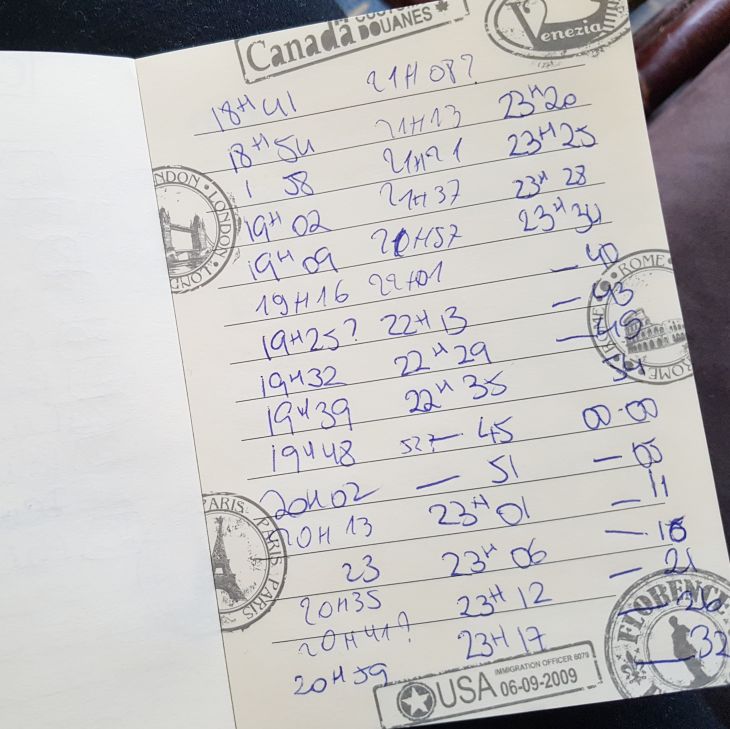 Canada CUSTOMS DOUANES
Venezia
18H41
18H54
1 58
19H02
19H09
19H16
19H25?
19H32
19H39
19H48
20H02
20H13
23
20H35
20H41?
20H59
21H08?
21H13
21H21
21H37
21H57
22H01
22H13
22H29
22H35
— 45
— 51
23H01
23H06
23H12
23H17
23H20
23H25
23H28
— 40
— 43
00.00
— 05
— 11
— 16
— 21
— 26
— 32
LONDON · LONDON
ROME
ROME
PARIS PARIS
PARIS
FLORENCE
IMMIGRATION OFFICER 6079
USA 06-09-2009